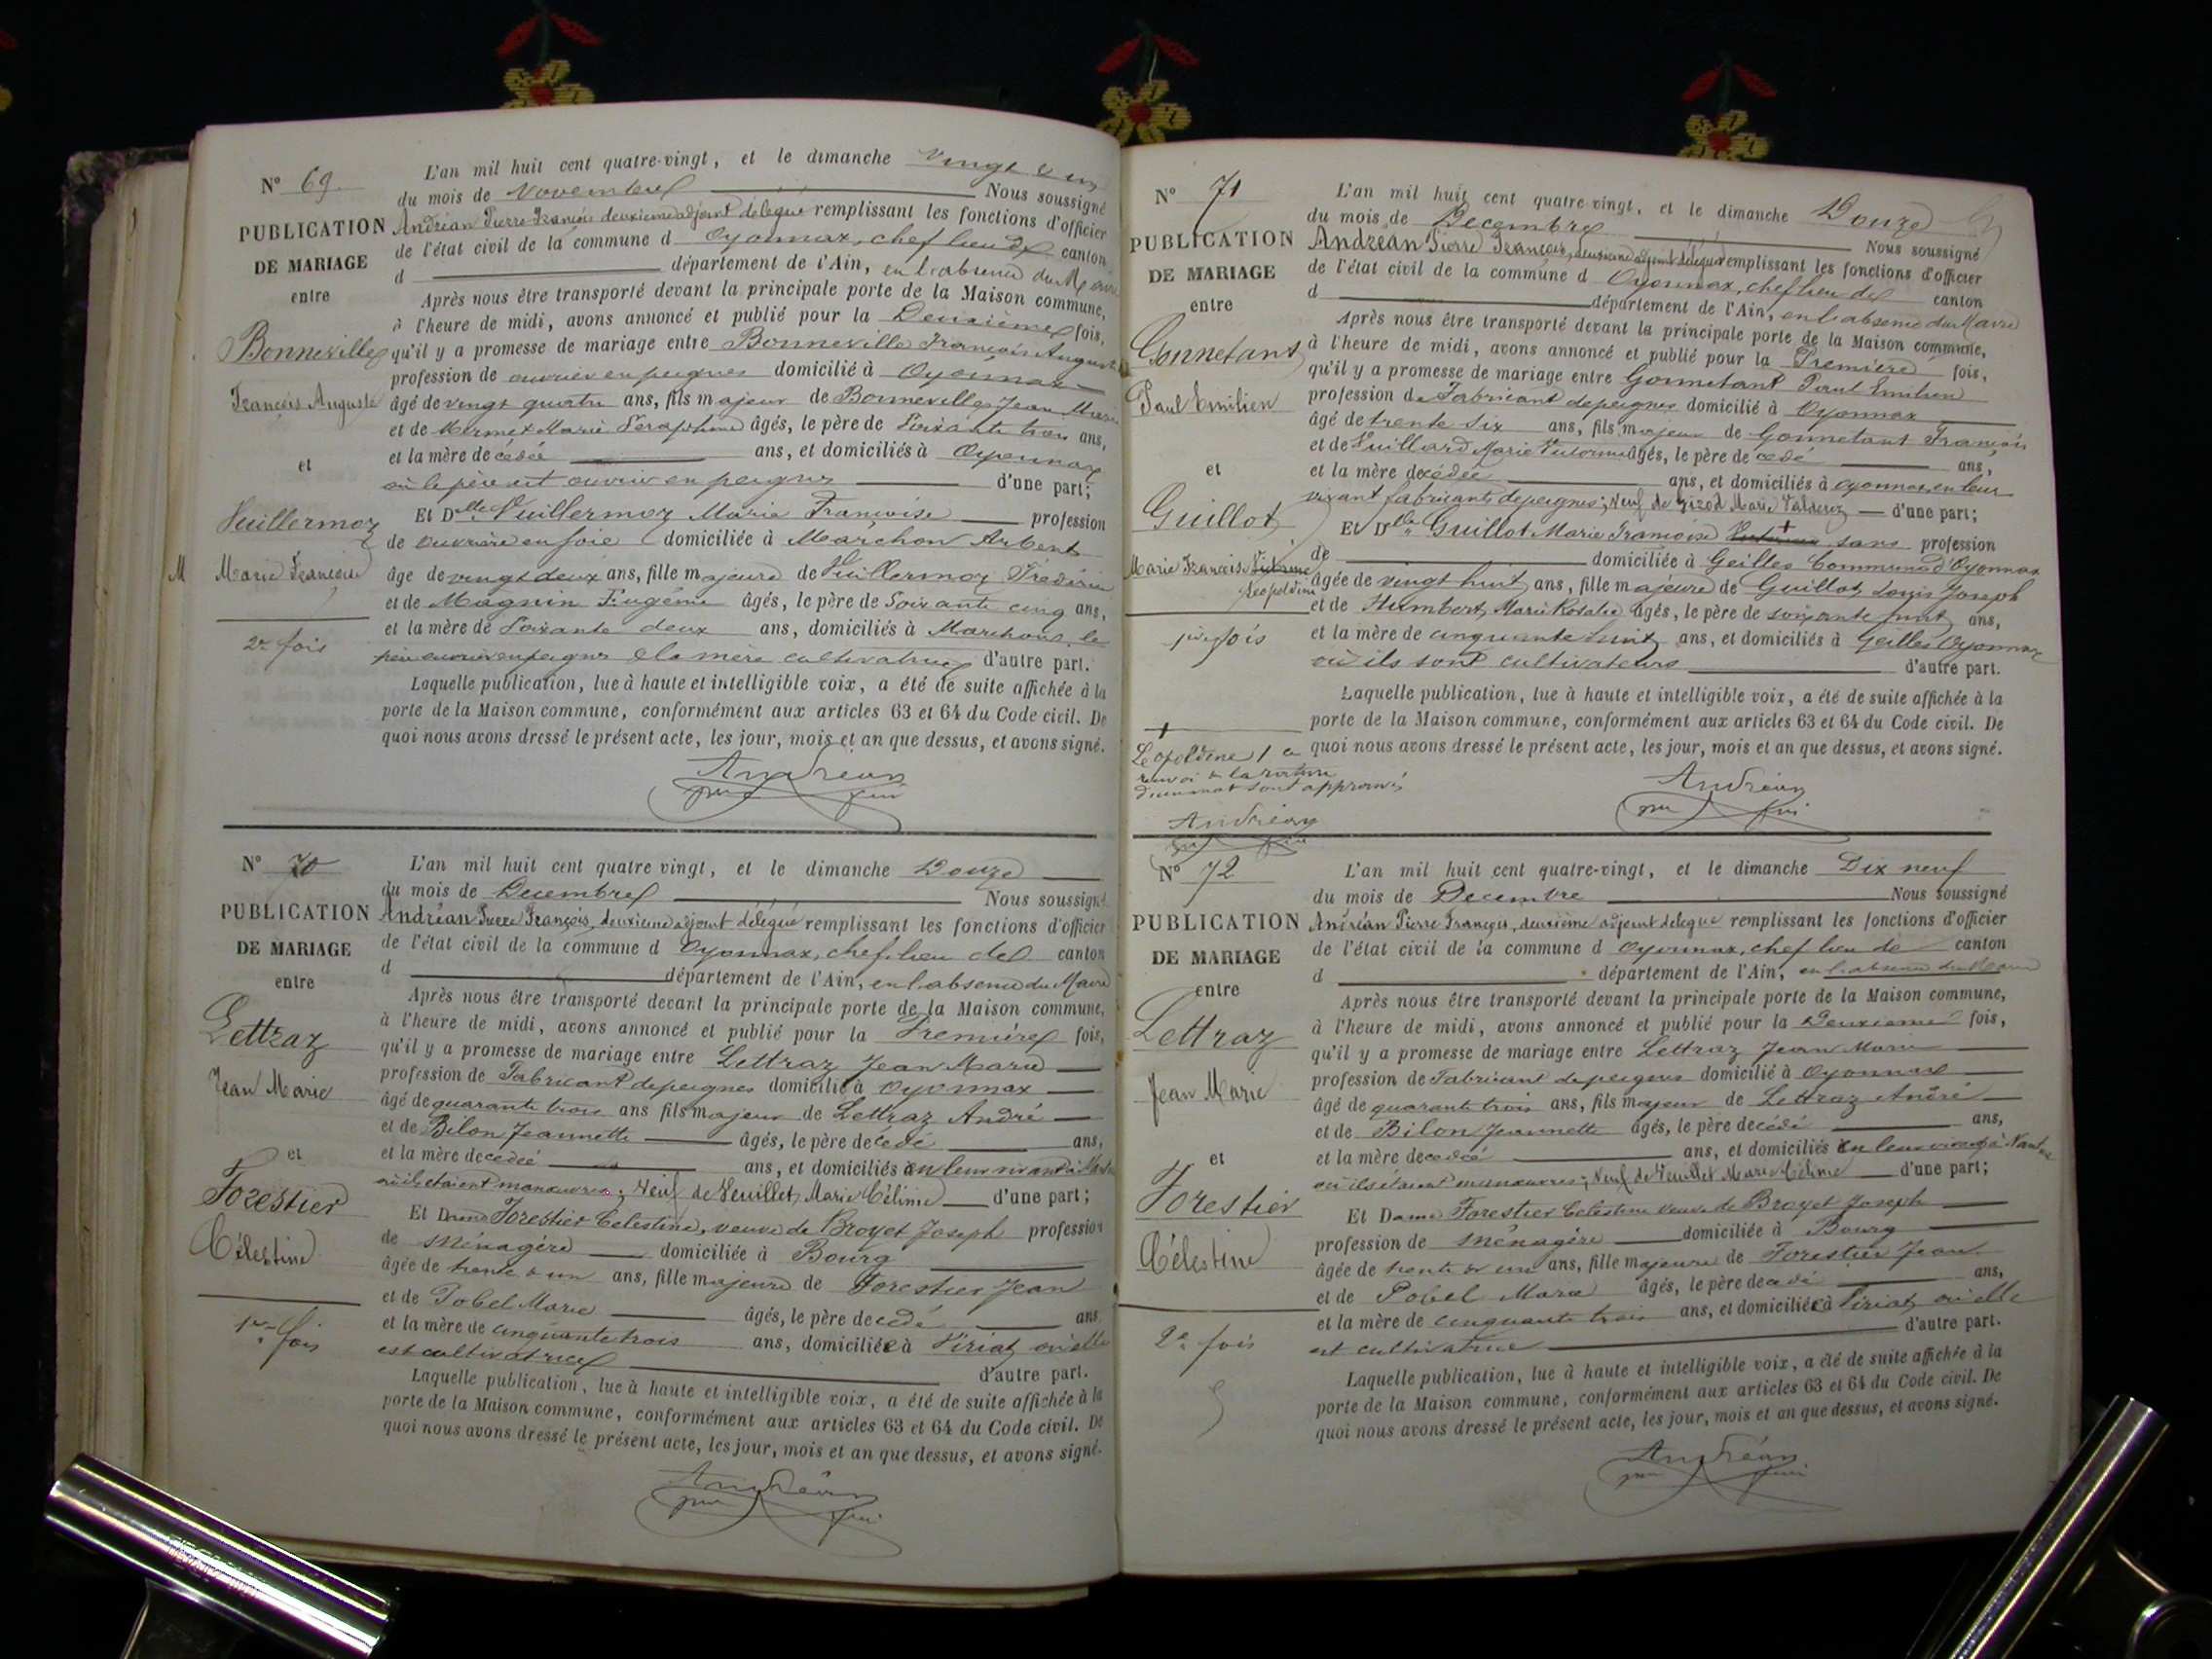 N° 69
PUBLICATION
DE MARIAGE
entre
Bonneville
François Auguste
et
Vuillermoz
Marie Françoise
M
2e fois
L'an mil huit cent quatre-vingt, et le dimanche vingt & un
du mois de Novembre Nous soussigné
Andréan Pierre François deuxieme adjoint délégué remplissant les fonctions d'officier
de l'état civil de la commune d Oyonnax, chef lieu de canton
d département de l'Ain, en l'absence du Maire
Après nous être transporté devant la principale porte de la Maison commune,
à l'heure de midi, avons annoncé et publié pour la Deuxième fois,
qu'il y a promesse de mariage entre Bonneville François Auguste
profession de ouvrier en peignes domicilié à Oyonnax
âgé de vingt quatre ans, fils majeur de Bonneville Jean Marie
et de Mermet Marie Séraphine âgés, le père de Soixante trois ans,
et la mère décédée ans, et domiciliés à Oyonnax
où le père est ouvrier en peignes d'une part;
Et Dlle Vuillermoz Marie Françoise profession
de ouvrière en soie domiciliée à Marchon Arbent
âgé de vingt deux ans, fille majeure de Vuillermoz Frédéric
et de Magnin Eugénie âgés, le père de Soixante cinq ans,
et la mère de Soixante deux ans, domiciliés à Marchon, le
père ouvrier en peignes & la mère cultivatrice d'autre part.
Laquelle publication, lue à haute et intelligible voix, a été de suite affichée à la
porte de la Maison commune, conformément aux articles 63 et 64 du Code civil. De
quoi nous avons dressé le présent acte, les jour, mois et an que dessus, et avons signé.
Andréan
N° 70
PUBLICATION
DE MARIAGE
entre
Lettraz
Jean Marie
et
Forestier
Célestine
1re fois
L'an mil huit cent quatre vingt, et le dimanche Douze
du mois de Decembre Nous soussigné
Andréan Pierre François, deuxieme adjoint délégué remplissant les fonctions d'officier
de l'état civil de la commune d Oyonnax, chef-lieu de canton
d département de l'Ain, en l'absence du Maire
Après nous être transporté devant la principale porte de la Maison commune,
à l'heure de midi, avons annoncé et publié pour la Première fois,
qu'il y a promesse de mariage entre Lettraz Jean Marie
profession de Fabricant de peignes domicilié à Oyonnax
âgé de quarante trois ans fils majeur de Lettraz André
et de Bilon Jeannette âgés, le père décédé ans,
et la mère decedée ans, et domiciliés en leur vivant à
où ils étaient manœuvres; Veuf de Veuillet Marie Céline d'une part;
Et Dame Forestier Célestine, veuve de Broyet Joseph profession
de Ménagère domiciliée à Bourg
âgée de trente & un ans, fille majeure de Forestier Jean
et de Pobel Marie âgés, le père décédé ans
et la mère de cinquante trois ans, domiciliée à Viriat où elle
est cultivatrice d'autre part.
Laquelle publication, lue à haute et intelligible voix, a été de suite affichée à la
porte de la Maison commune, conformément aux articles 63 et 64 du Code civil. De
quoi nous avons dressé le présent acte, les jour, mois et an que dessus, et avons signé.
Andréan
N° 71
PUBLICATION
DE MARIAGE
entre
Gonnetant
Paul Emilien
et
Guillot
Marie Françoise
Léopoldine
1re fois
Léopoldine 1 en
renvoi & la rature
d'un mot sont approuvés
Andréan
L'an mil huit cent quatre-vingt, et le dimanche Douze
du mois de Decembre Nous soussigné
Andréan Pierre François, deuxieme adjoint délégué remplissant les fonctions d'officier
de l'état civil de la commune d Oyonnax, chef lieu de canton
d département de l'Ain, en l'absence du Maire
Après nous être transporté devant la principale porte de la Maison commune,
à l'heure de midi, avons annoncé et publié pour la Première fois,
qu'il y a promesse de mariage entre Gonnetant Paul Emilien
profession de Fabricant de peignes domicilié à Oyonnax
âgé de trente six ans, fils majeur de Gonnetant François
et de Vuillard Marie âgés, le père décédé ans,
et la mère décédée ans, et domiciliés à Oyonnax, en leur
vivant fabricants de peignes; Veuf de Marie d'une part;
Et Dlle Guillot Marie Françoise sans profession
de domiciliée à Geilles Commune d'Oyonnax
âgée de vingt huit ans, fille majeure de Guillot Louis Joseph
et de Humbert Marie Rosalie âgés, le père de soixante huit ans,
et la mère de cinquante huit ans, et domiciliés à Geilles Oyonnax
où ils sont cultivateurs d'autre part.
Laquelle publication, lue à haute et intelligible voix, a été de suite affichée à la
porte de la Maison commune, conformément aux articles 63 et 64 du Code civil. De
quoi nous avons dressé le présent acte, les jour, mois et an que dessus, et avons signé.
Andréan
N° 72
PUBLICATION
DE MARIAGE
entre
Lettraz
Jean Marie
et
Forestier
Célestine
2e fois
L'an mil huit cent quatre-vingt, et le dimanche Dix neuf
du mois de Decembre Nous soussigné
Andréan Pierre François, deuxième adjoint délégué remplissant les fonctions d'officier
de l'état civil de la commune d Oyonnax, chef lieu de canton
d département de l'Ain, en l'absence du Maire
Après nous être transporté devant la principale porte de la Maison commune,
à l'heure de midi, avons annoncé et publié pour la Deuxieme fois,
qu'il y a promesse de mariage entre Lettraz Jean Marie
profession de Fabricant de peignes domicilié à Oyonnax
âgé de quarante trois ans, fils majeur de Lettraz André
et de Bilon Jeannette âgés, le père décédé ans,
et la mère decedée ans, et domiciliés en leur vivant à
où ils étaient manœuvres; Veuf de Veuillet Marie Céline d'une part;
Et Dame Forestier Célestine veuve de Broyet Joseph
profession de Ménagère domiciliée à Bourg
âgée de trente & un ans, fille majeure de Forestier Jean
et de Pobel Marie âgés, le père décédé ans,
et la mère de cinquante trois ans, et domiciliée à Viriat où elle
est cultivatrice d'autre part.
Laquelle publication, lue à haute et intelligible voix, a été de suite affichée à la
porte de la Maison commune, conformément aux articles 63 et 64 du Code civil. De
quoi nous avons dressé le présent acte, les jour, mois et an que dessus, et avons signé.
Andréan